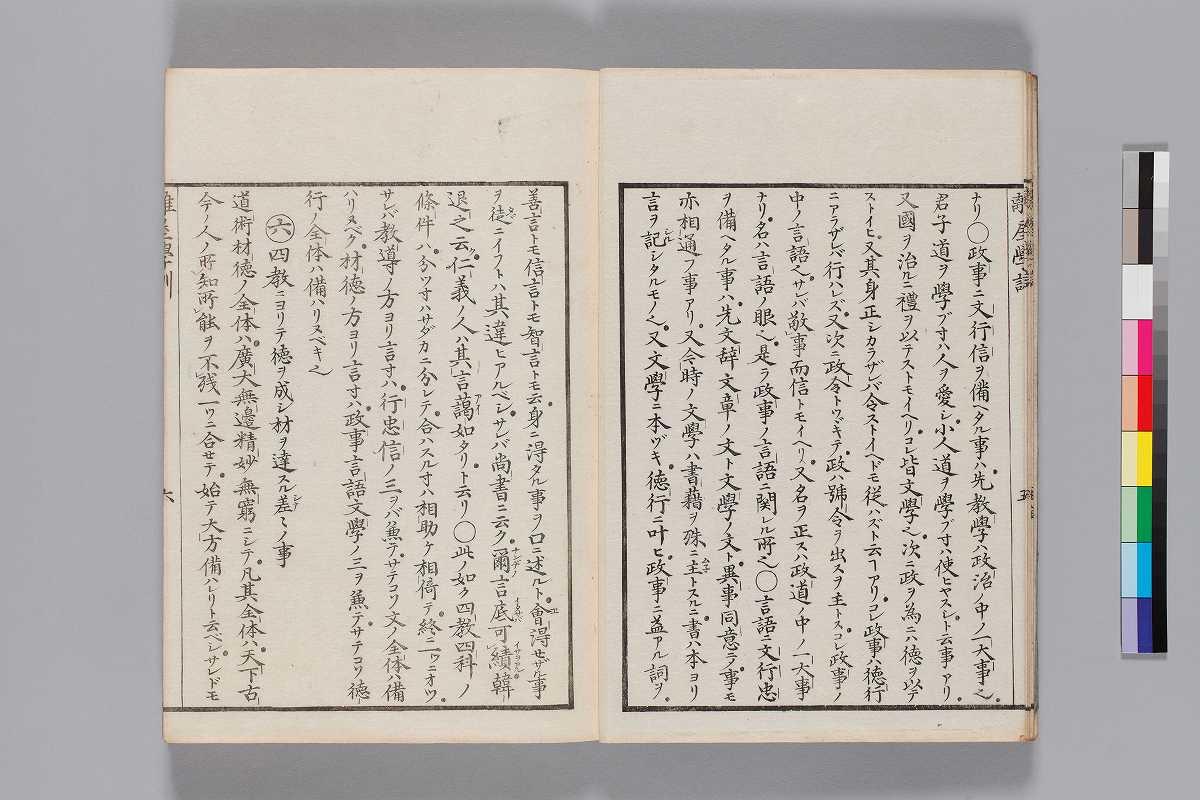 ナリ〇政事ニ文行信ヲ備ヘタル事ハ先教學ハ政治ノ中ノ一大事ヘ
君子道ヲ學ブ寸ハ人ヲ愛シ小人道ヲ學ブ寸ハ使ヒヤスシト云事アリ
又國ヲ治ルニ禮ヲ以テストモイヘリコレ皆文學ヘ次ニ政ヲ為ニハ德ヲ以テ
ストイヒ又其身正シカラザレバ令ストイヘドモ從ハズト云ヿアリコレ政事ハ德行
ニアラザレバ行ハレズ又次ニ政令トツヾキテ政ハ號令ヲ出スヲ主トスコレ政事ノ
中ノ言語ヘサレバ敬事而信トモイヘリ又名ヲ正スハ政道ノ中ノ一大事
ナリ名ハ言語ノ眼ヘ是ラ政事ノ言語ニ関レル所ヘ〇言語ニ文行忠
ヲ備ヘタル事ハ先文辞文章ノ文ト文學ノ文ト異事同意ラ事モ
亦相通フ事アリ又今時ノ文學ハ書藉ヲ殊ニ主トスルニ書ハ本ヨリ
言ヲ記シタルモノヘ又文學ニ本ヅキ德行ニ叶ヒ政事ニ益アル詞ヲ
五
善言トモ信言トモ智言トモ云身ニ得タル事ヲ口ニ述ルト會得セザル事
ヲ徒ニイフトハ其違ヒアルベシサレバ尚書ニ云ク爾言底可績韓
退之云ク仁義ノ人ハ其言藹如タリト云リ〇此ノ如ク四教四科ノ
條件ハ分ツ寸ハサダカニ分レテ合ハスル寸ハ相助ケ相倚テ終ニ一ツニオツ
サレバ教導ノ方ヨリ言寸ハ行忠信ノ三ヲバ兼テサテコソ文ノ全体ハ備
ハリヌベク材德ノ方ヨリ言寸ハ政事言語文學ノ三ヲ兼テサテコソ德
行ノ全体ハ備ハリヌベキヘ
六 四教ニヨリテ德ヲ成シ材ヲ達スル差〻ノ事
道術材德ノ全体ハ廣大無邊精妙無窮ニシテ凡其全体ハ天下古
今ノ人ノ所知所能ヲ不残一ツニ合セテ始テ大方備ハレリト云ベシサレドモ
六